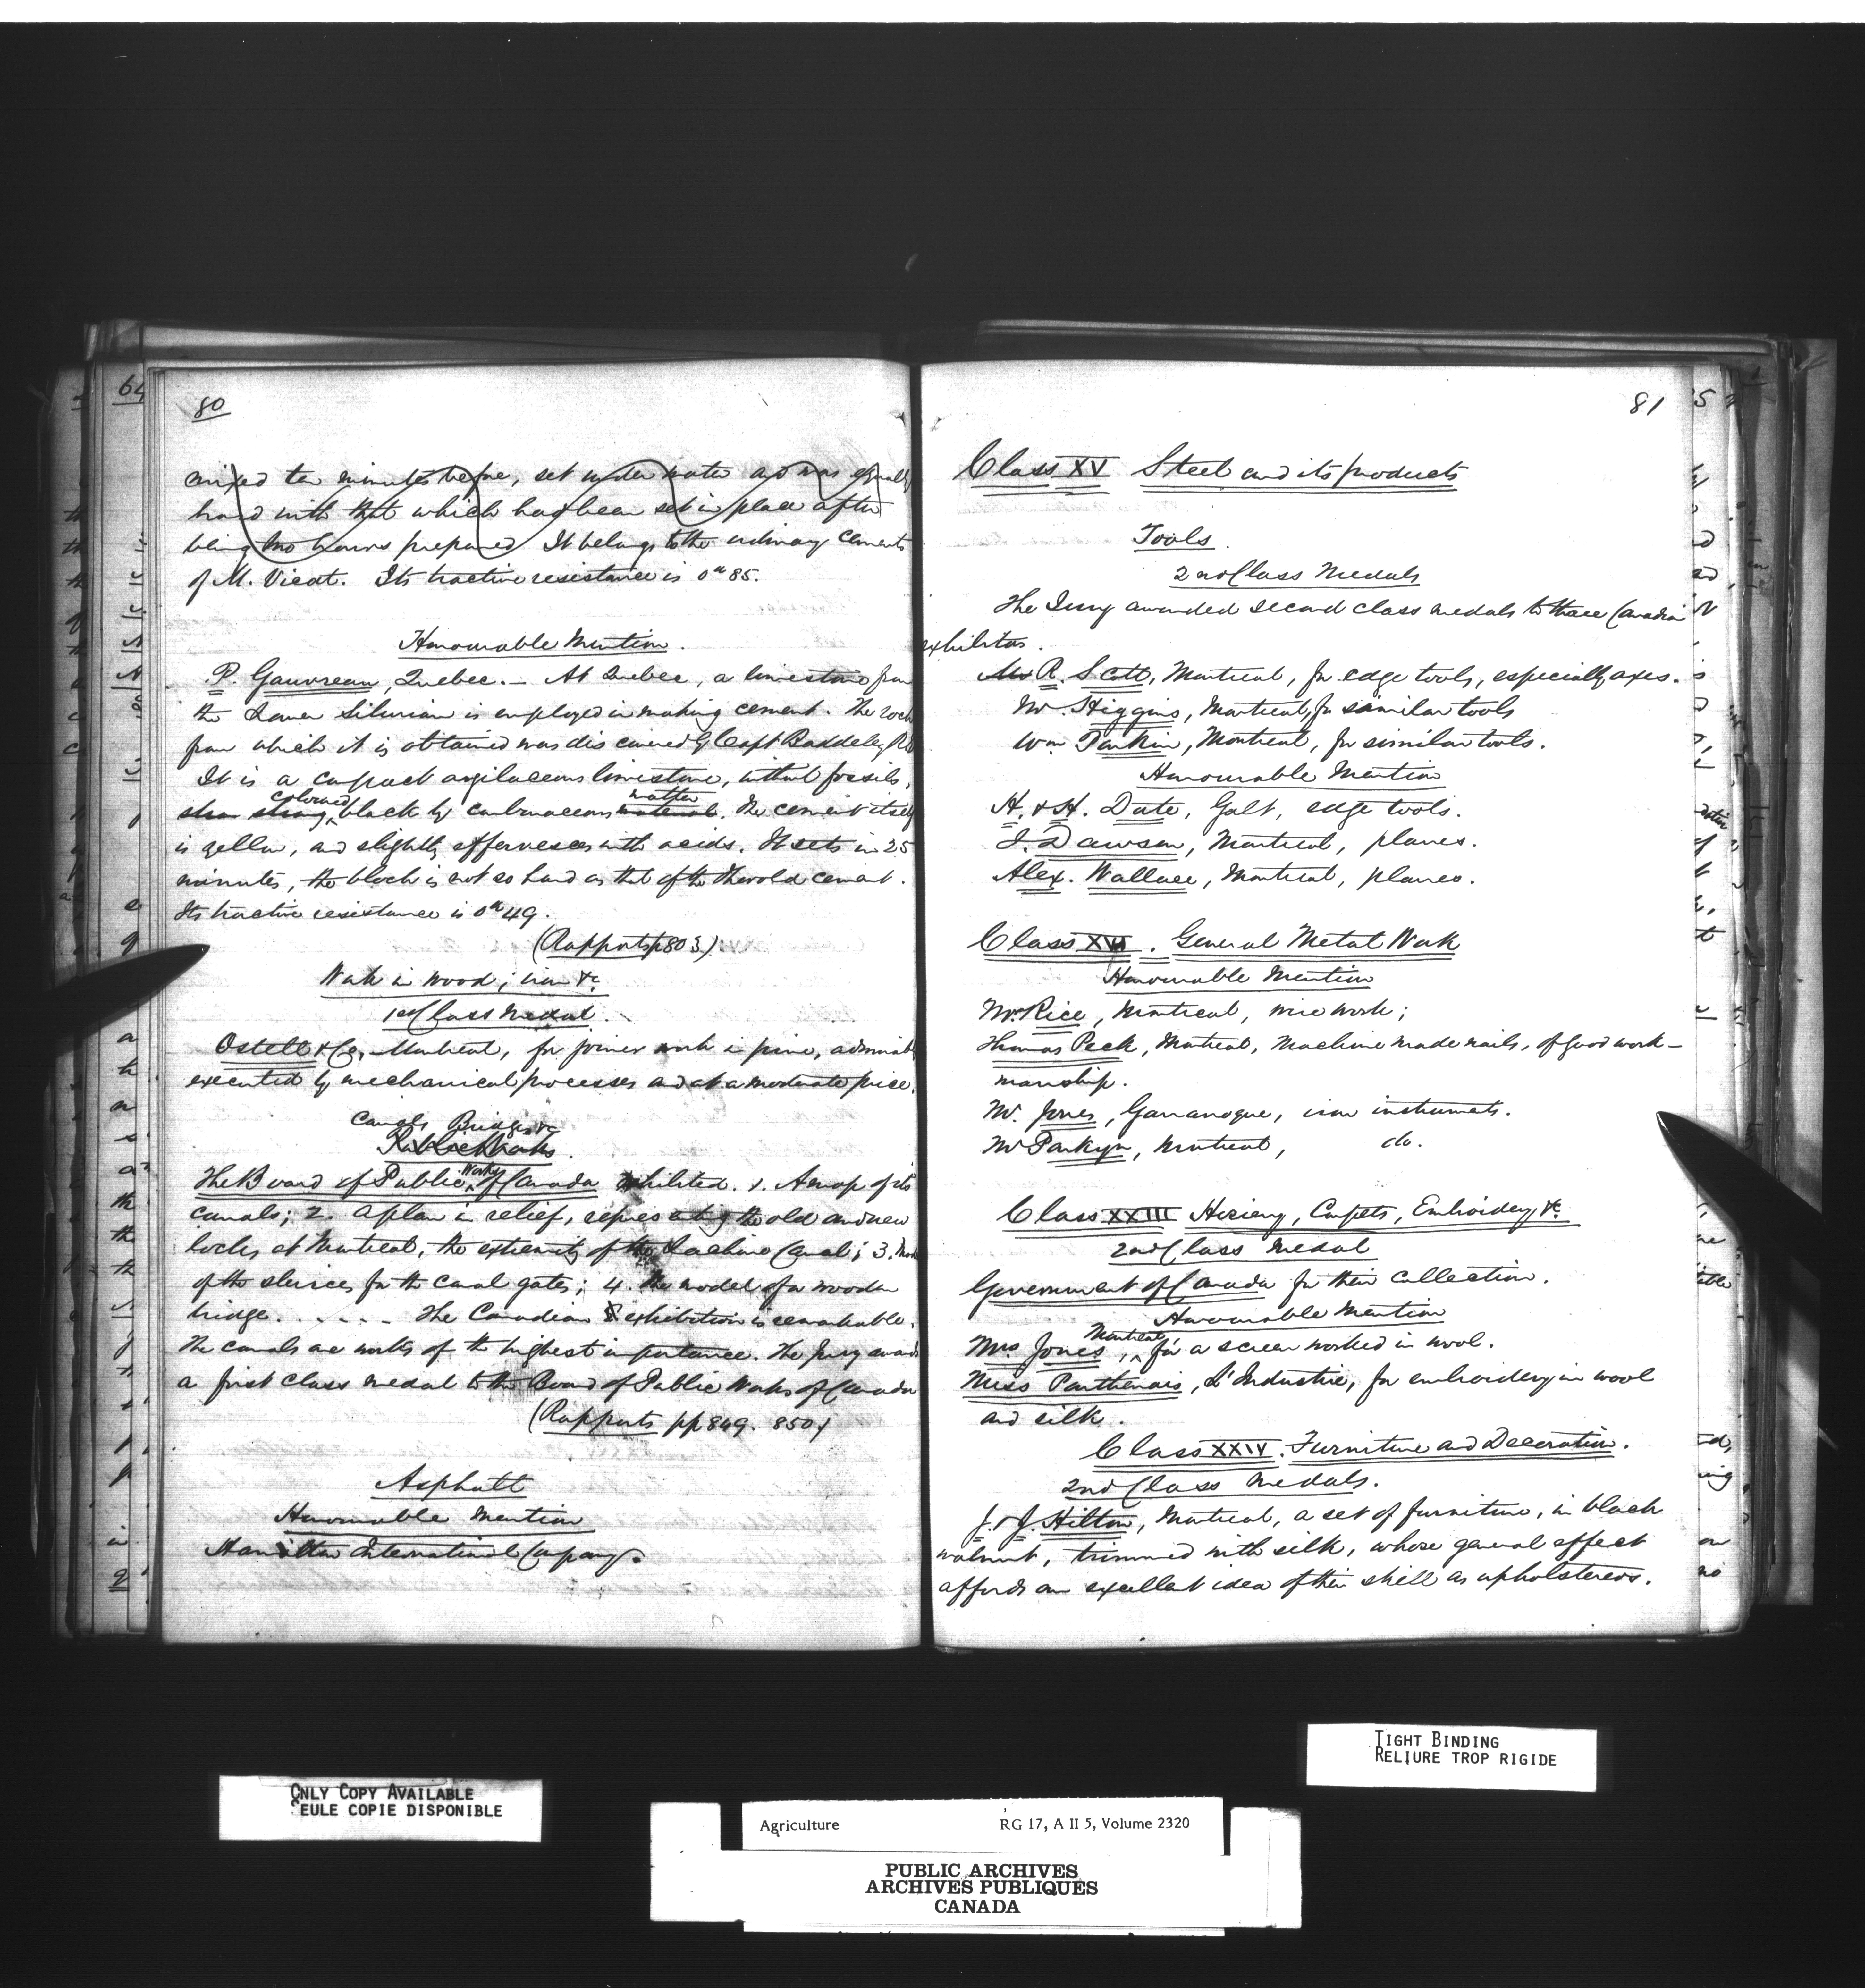 64
80
mixed ten minutes before, set under water and was equally
hard with that which had been set in place after
being two hours prepared It belongs to the ordinary cements
of M. Vicat. Its tractive resistance is 0k 85.
Honourable Mention.
P. Gauvreau, Quebec. — At Quebec, a limestone from
the Lower Silurian is employed in making cement. The rock
from which it is obtained was discovered by Capt Baddeley RE
It is a compact argilaceous limestone, without fossils,
coloured matter
strong black by carbonaceous material. The cement itself
is yellow, and slightly effervesces with acids. It sets in 25
minutes, the block is not so hard as that of the Thorold cement.
Its tractive resistance is 0k 49.
(Rapports p 803)
Work in wood, iron &c
1st Class Medal.
Ostell & Co, Montreal, for joiner work in pine, admirably
executed by mechanical processes and at a moderate price.
Canals Bridges &c
Public Works.
The Board of Public Works of Canada exhibited. 1. A map of its
canals; 2. a plan in relief, representing the old and new
locks at Montreal, the extremity of the Lachine Canal; 3. Model
of the sluices for the canal gates; 4. the model of a wooden
bridge. . . . . . The Canadian exhibition is remarkable.
The canals are works of the highest importance. The Jury award
a first class medal to the Board of Public Works of Canada
(Rapports pp 849. 850)
Asphalt
Honourable Mention
Hamilton International Company.
81
Class XV Steel and its products
Tools.
2nd Class Medals
The Jury awarded second class medals to three Canadian
exhibitors.
Mr R. Scott, Montreal, for edge tools, especially axes.
Mr. Higgins, Montreal, for similar tools
Wm Parkin, Montreal, for similar tools.
Honourable Mention
H. & H. Date, Galt, edge tools.
J. Dawson, Montreal, planes.
Alex. Wallace, Montreal, planes.
Class XVI. General Metal Work
Honourable Mention
Mr. Rice, Montreal, wire work;
Thomas Peck, Montreal, Machine made nails, of good work-
manship.
Mr. Jones, Gananoque, iron instruments.
Mr Parkyn, Montreal, do.
Class XXIII Hosiery, Carpets, Embroidery &c
2nd Class Medal
Government of Canada for their collection.
Honourable Mention
Mrs Jones, Montreal, for a screen worked in wool.
Miss Parthenais, L'Industrie, for embroidery in wool
and silk.
Class XXIV. Furniture and Decoration.
2nd Class Medals.
J. & J. Hilton, Montreal, a set of furniture, in black
walnut, trimmed with silk, whose general effect
affords an excellent idea of their skill as upholsterers.
TIGHT BINDING
RELIURE TROP RIGIDE
ONLY COPY AVAILABLE
SEULE COPIE DISPONIBLE
Agriculture RG 17, A II 5, Volume 2320
PUBLIC ARCHIVES
ARCHIVES PUBLIQUES
CANADA